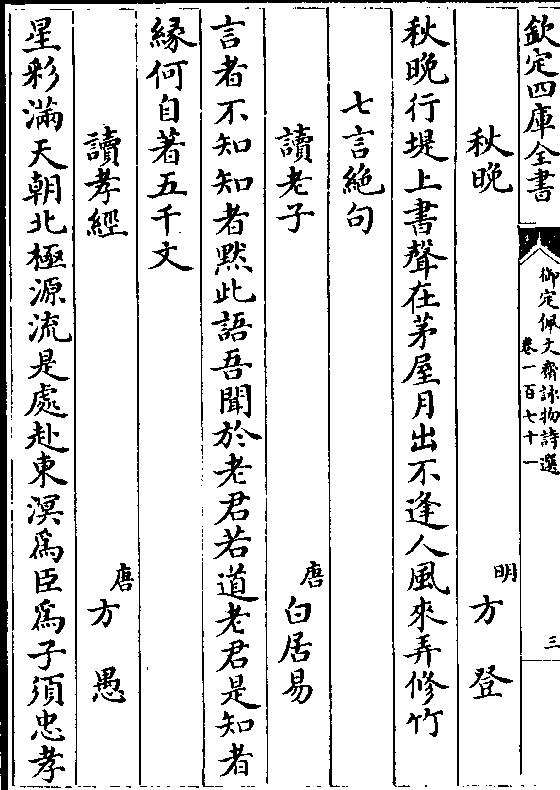 欽定四庫全書
御定佩文齋詠物詩選
卷一百七十一
三
秋晚
明
方登
秋晚行堤上書聲在茅屋月出不逢人風來弄修竹
七言絶句
讀老子
唐
白居易
言者不知知者黙此語吾聞於老君若道老君是知者
緣何自著五千文
讀孝經
唐
方愚
星彩滿天朝北極源流是處赴東溟為臣為子須忠孝